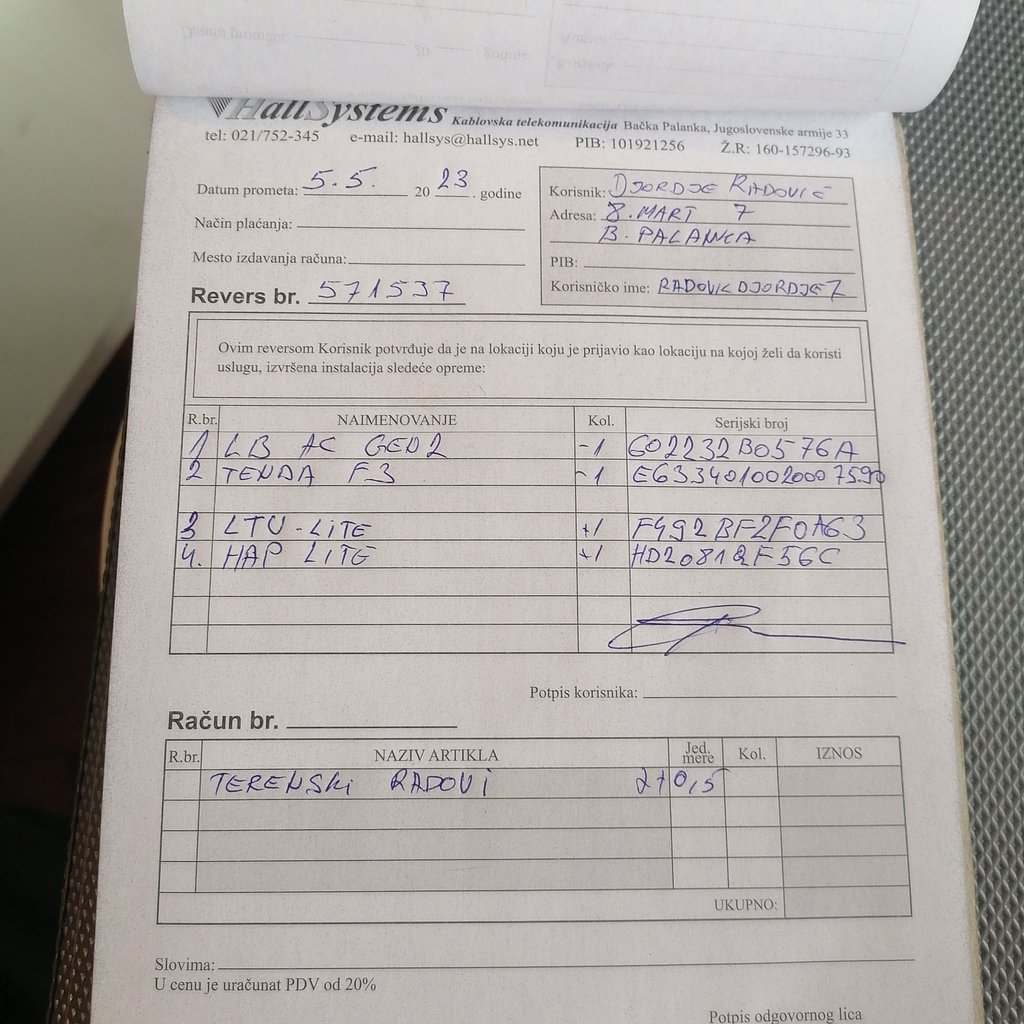 HallSystems Kablovska telekomunikacija Bačka Palanka, Jugoslovenske armije 33
tel: 021/752-345 e-mail: hallsys@hallsys.net PIB: 101921256 Ž.R: 160-157296-93
Datum prometa: 5.5. 20 23. godine
Način plaćanja:
Mesto izdavanja računa:
Revers br. 571537
Korisnik: DJORDJE RADOVIĆ
Adresa: 8. MART 7
B. PALANKA
PIB:
Korisničko ime: RADOVICDJORDJE7
Ovim reversom Korisnik potvrđuje da je na lokaciji koju je prijavio kao lokaciju na kojoj želi da koristi
uslugu, izvršena instalacija sledeće opreme:
R.br. NAIMENOVANJE Kol. Serijski broj
1 LB AC GEN2 -1 602232B0576A
2 TENDA F3 -1 E6334010020007590
3 LTU-LITE +1 F492BF2F0A63
4. HAP LITE +1 HD20812F56C
Potpis korisnika:
Račun br.
R.br. NAZIV ARTIKLA Jed. mere Kol. IZNOS
TERENSKI RADOVI 2+0,5
UKUPNO:
Slovima:
U cenu je uračunat PDV od 20%
Potpis odgovornog lica